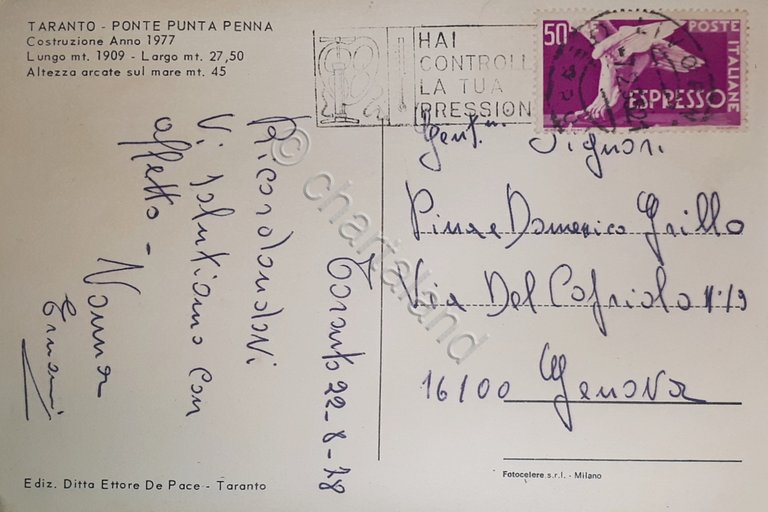 TARANTO - PONTE PUNTA PENNA
Costruzione Anno 1977
Lungo mt. 1909 - Largo mt. 27,50
Altezza arcate sul mare mt. 45
HAI
CONTROLL
LA TUA
PRESSION
50
POSTE ITALIANE
ESPRESSO
Taranto 22-8-78
Ricordandovi
Vi salutiamo con
affetto -
Nonna
Gent.mi Signori
Pina e Domenico Grillo
Via Del
16100 Genova
Ediz. Ditta Ettore De Pace - Taranto
Fotocelere s.r.l. - Milano
© chartaland